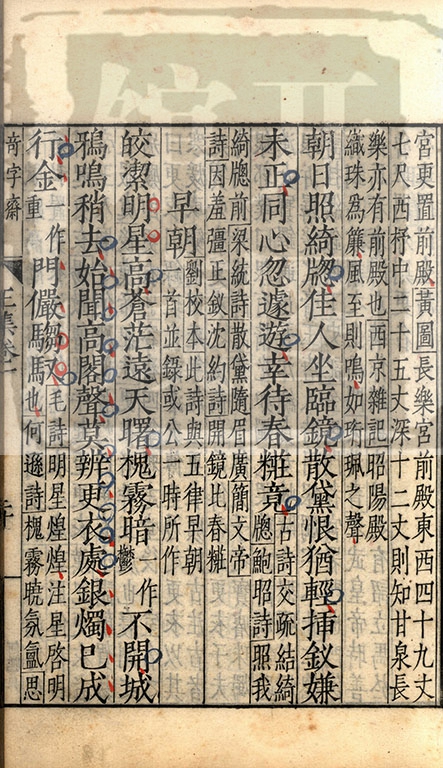 宮更置前殿黃圖長樂宮前殿東西四十九丈
七尺西杼中二十五丈深十二丈則知甘泉長
樂亦有前殿也西京雜記昭陽殿
織珠為簾風至則鳴如珩珮之聲
朝日照綺牕佳人坐臨鏡散黛恨猶輕揷釵嫌
未正同心忽遽遊幸待春糚竟古詩交疏結綺
牕鮑昭詩照我
綺牕前梁統詩散黛隨眉廣簡文帝
詩因羞彊正釵沈約詩開鏡比春糚
早朝劉校本此詩與五律早朝
一首並錄或公一時所作
皎潔明星高蒼茫遠天曙槐霧暗一作鬱不開城
鴉鳴稍去始聞高閣聲莫辨更衣處銀燭已成
行金一作重門儼騶馭毛詩明星煌煌注星啓明
也何遜詩槐霧曉氛氳思